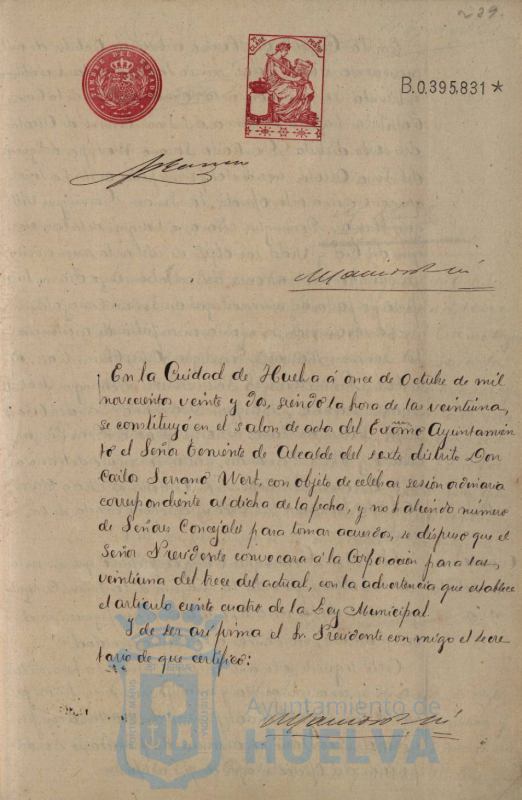 229.
TIMBRE DEL ESTADO
CLASE
PESETA
B.0.395.831*
En la Cuidad de Huelva á once de Octubre de mil
novecientos veinte y dos, siendo la hora de las veintiuna,
se constituyó en el salon de acta del Excmo Ayuntamien
to el Señor Teniente de Alcalde del sexto distrito Don
Carlos Serrano Wert, con objeto de celebar sesión ordinaria
correspondiente al dicha de la fecha, y no habiendo número
de Señores Concejales para tomar acuerdos, se dispuso que el
Señor Presidente convocara á la Corporación para las
veintiuna del trece del actual, con la advertencia que establece
el artículo ciento cuatro de la Ley Municipal.
Y de ser así firma el Sr. Presidente con migo el secre
tario de que certifico:
Ayuntamiento de
HUELVA